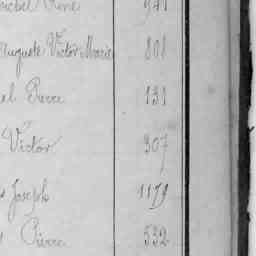 René 941
Auguste Victor Marie 808
el Pierre 131
Victor 307
Joseph 1179
Pierre 532